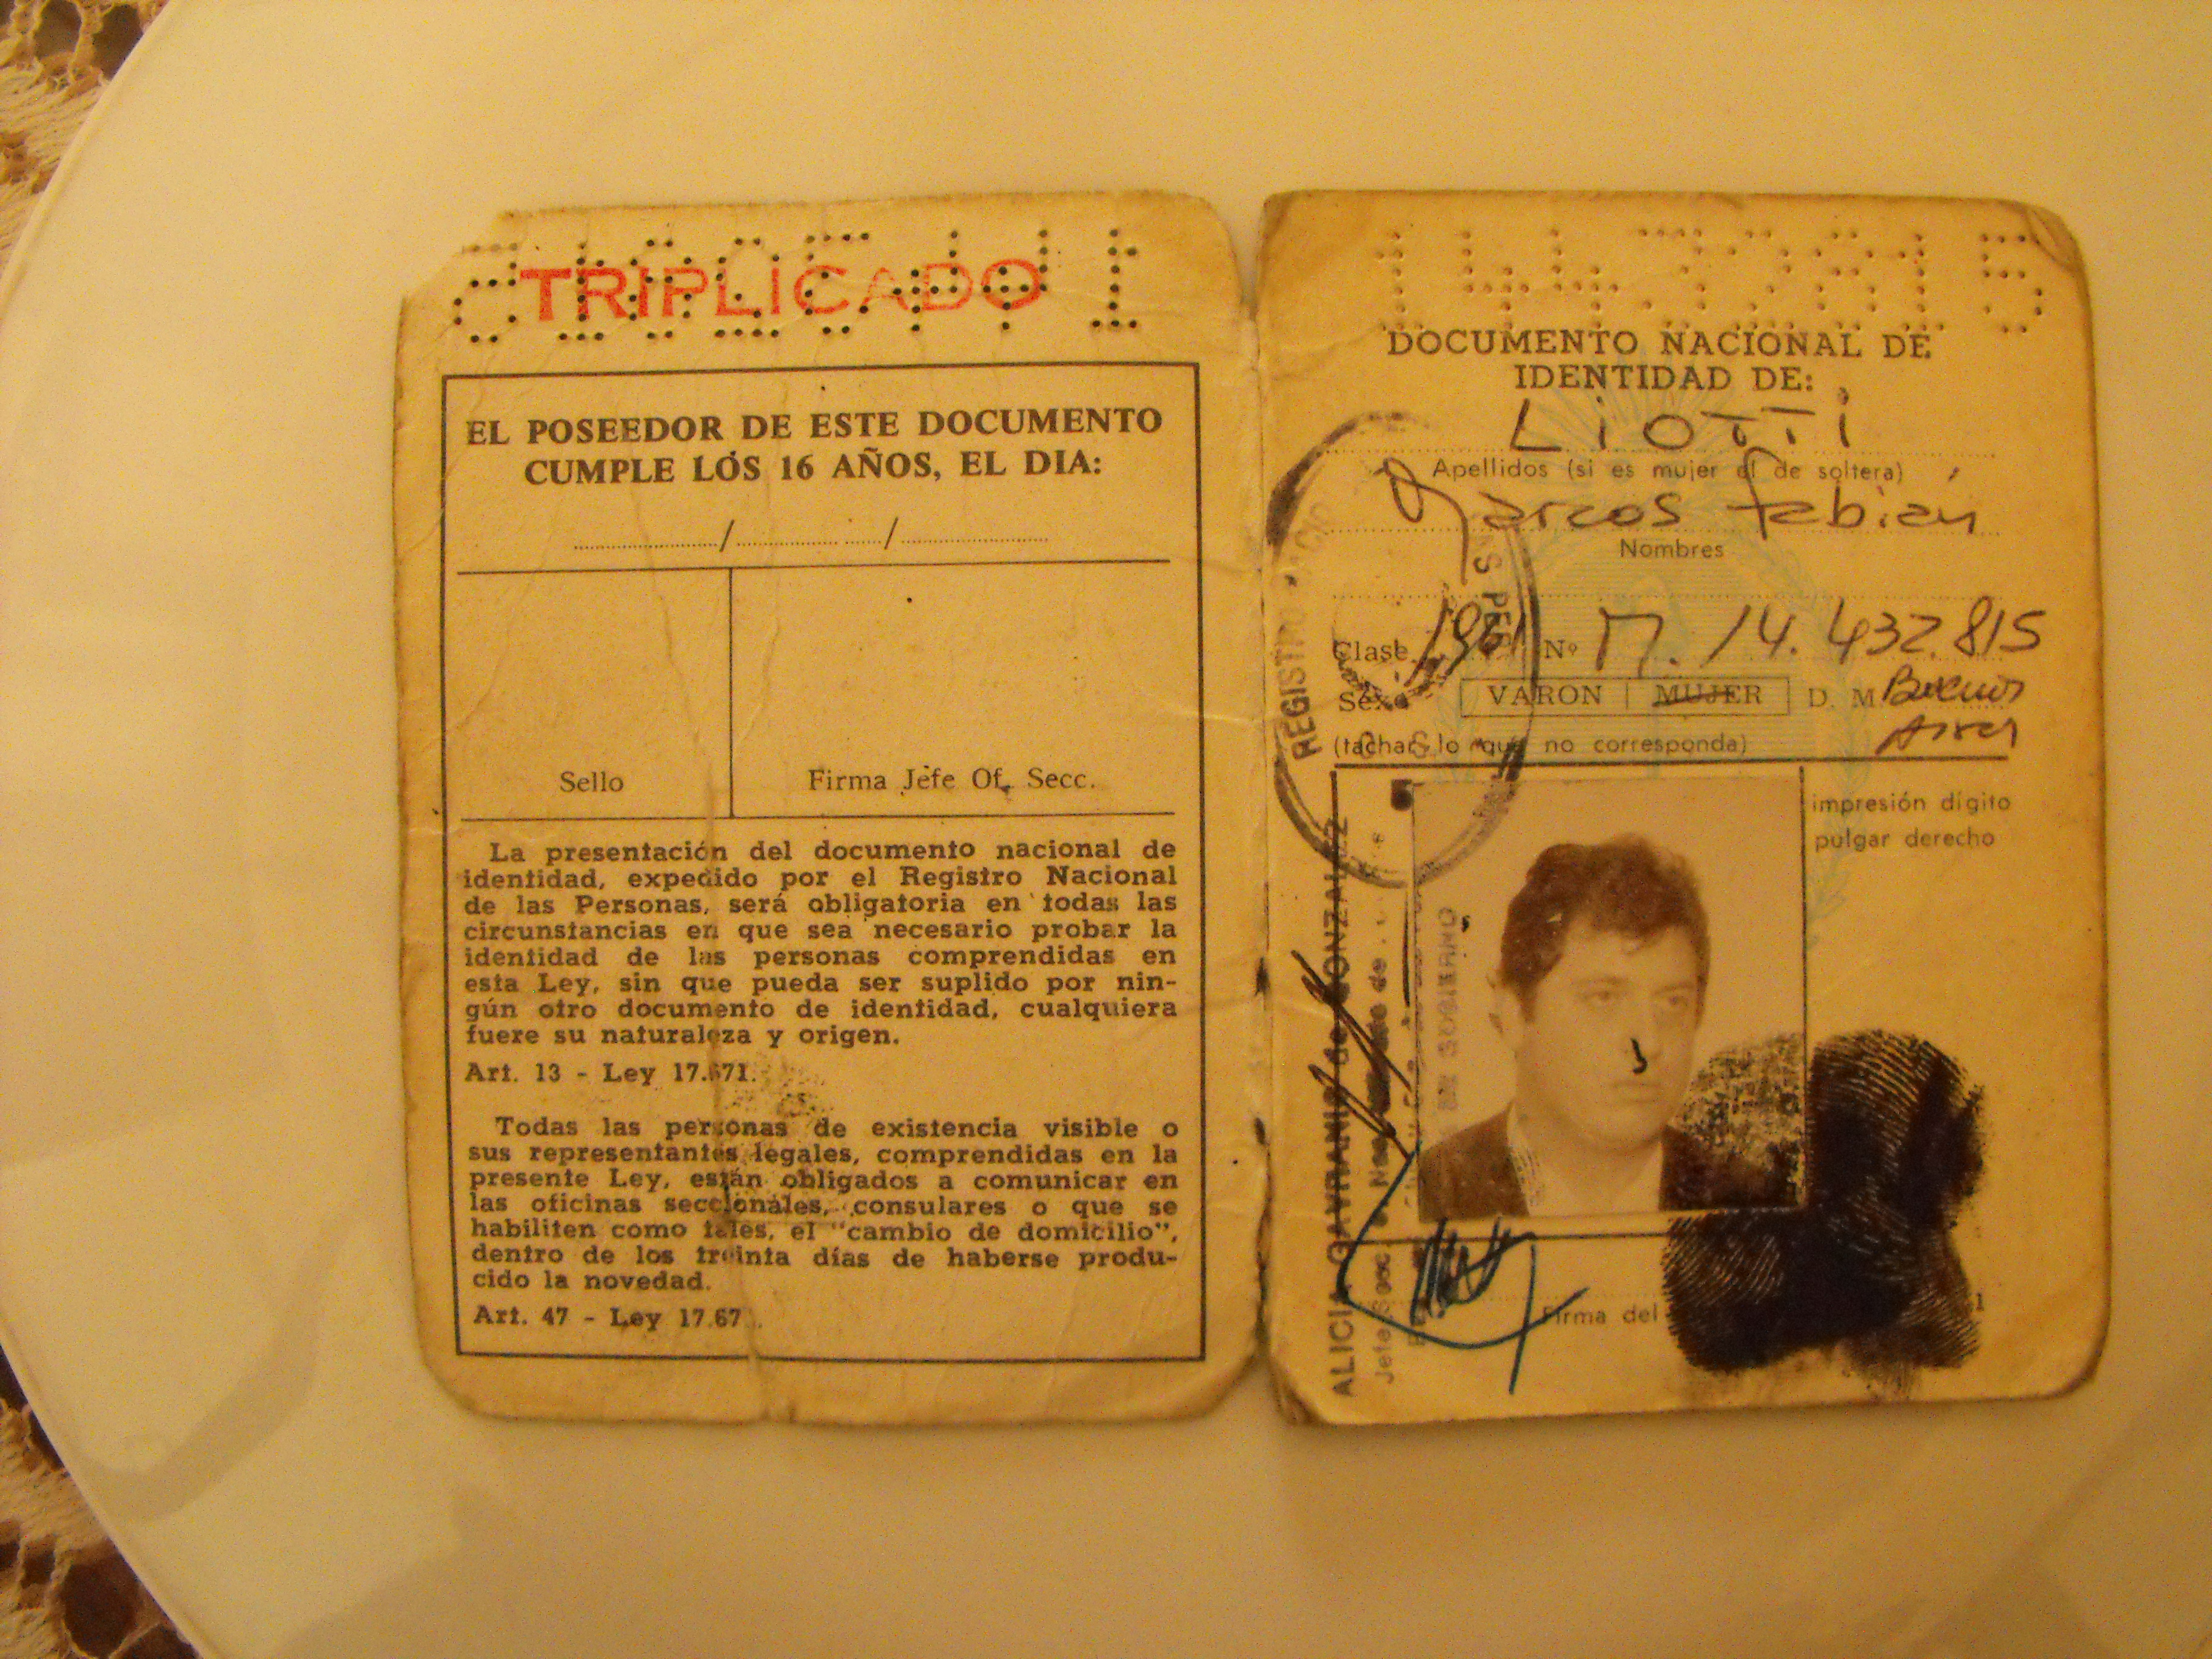 TRIPLICADO
EL POSEEDOR DE ESTE DOCUMENTO
CUMPLE LOS 16 AÑOS, EL DIA:
/ /
Sello
Firma Jefe Of. Secc.
La presentación del documento nacional de
identidad, expedido por el Registro Nacional
de las Personas, será obligatoria en todas las
circunstancias en que sea necesario probar la
identidad de las personas comprendidas en
esta Ley, sin que pueda ser suplido por nin-
gún otro documento de identidad, cualquiera
fuere su naturaleza y origen.
Art. 13 - Ley 17.671.
Todas las personas de existencia visible o
sus representantes legales, comprendidas en la
presente Ley, están obligados a comunicar en
las oficinas seccionales, consulares o que se
habiliten como tales, el "cambio de domicilio",
dentro de los treinta días de haberse produ-
cido la novedad.
Art. 47 - Ley 17.67
14432815
DOCUMENTO NACIONAL DE
IDENTIDAD DE:
LIOTTI
Apellidos (si es mujer el de soltera)
Marcos Fabián
Nombres
Clase 1961 Nº M. 14.432.815
Sexo VARON MUJER D. M Buenos
Aires
(tachar lo que no corresponda)
impresión dígito
pulgar derecho
Firma del
REGISTRO
ALICIA GAVRANIC de GONZALEZ
Jefe Secc.